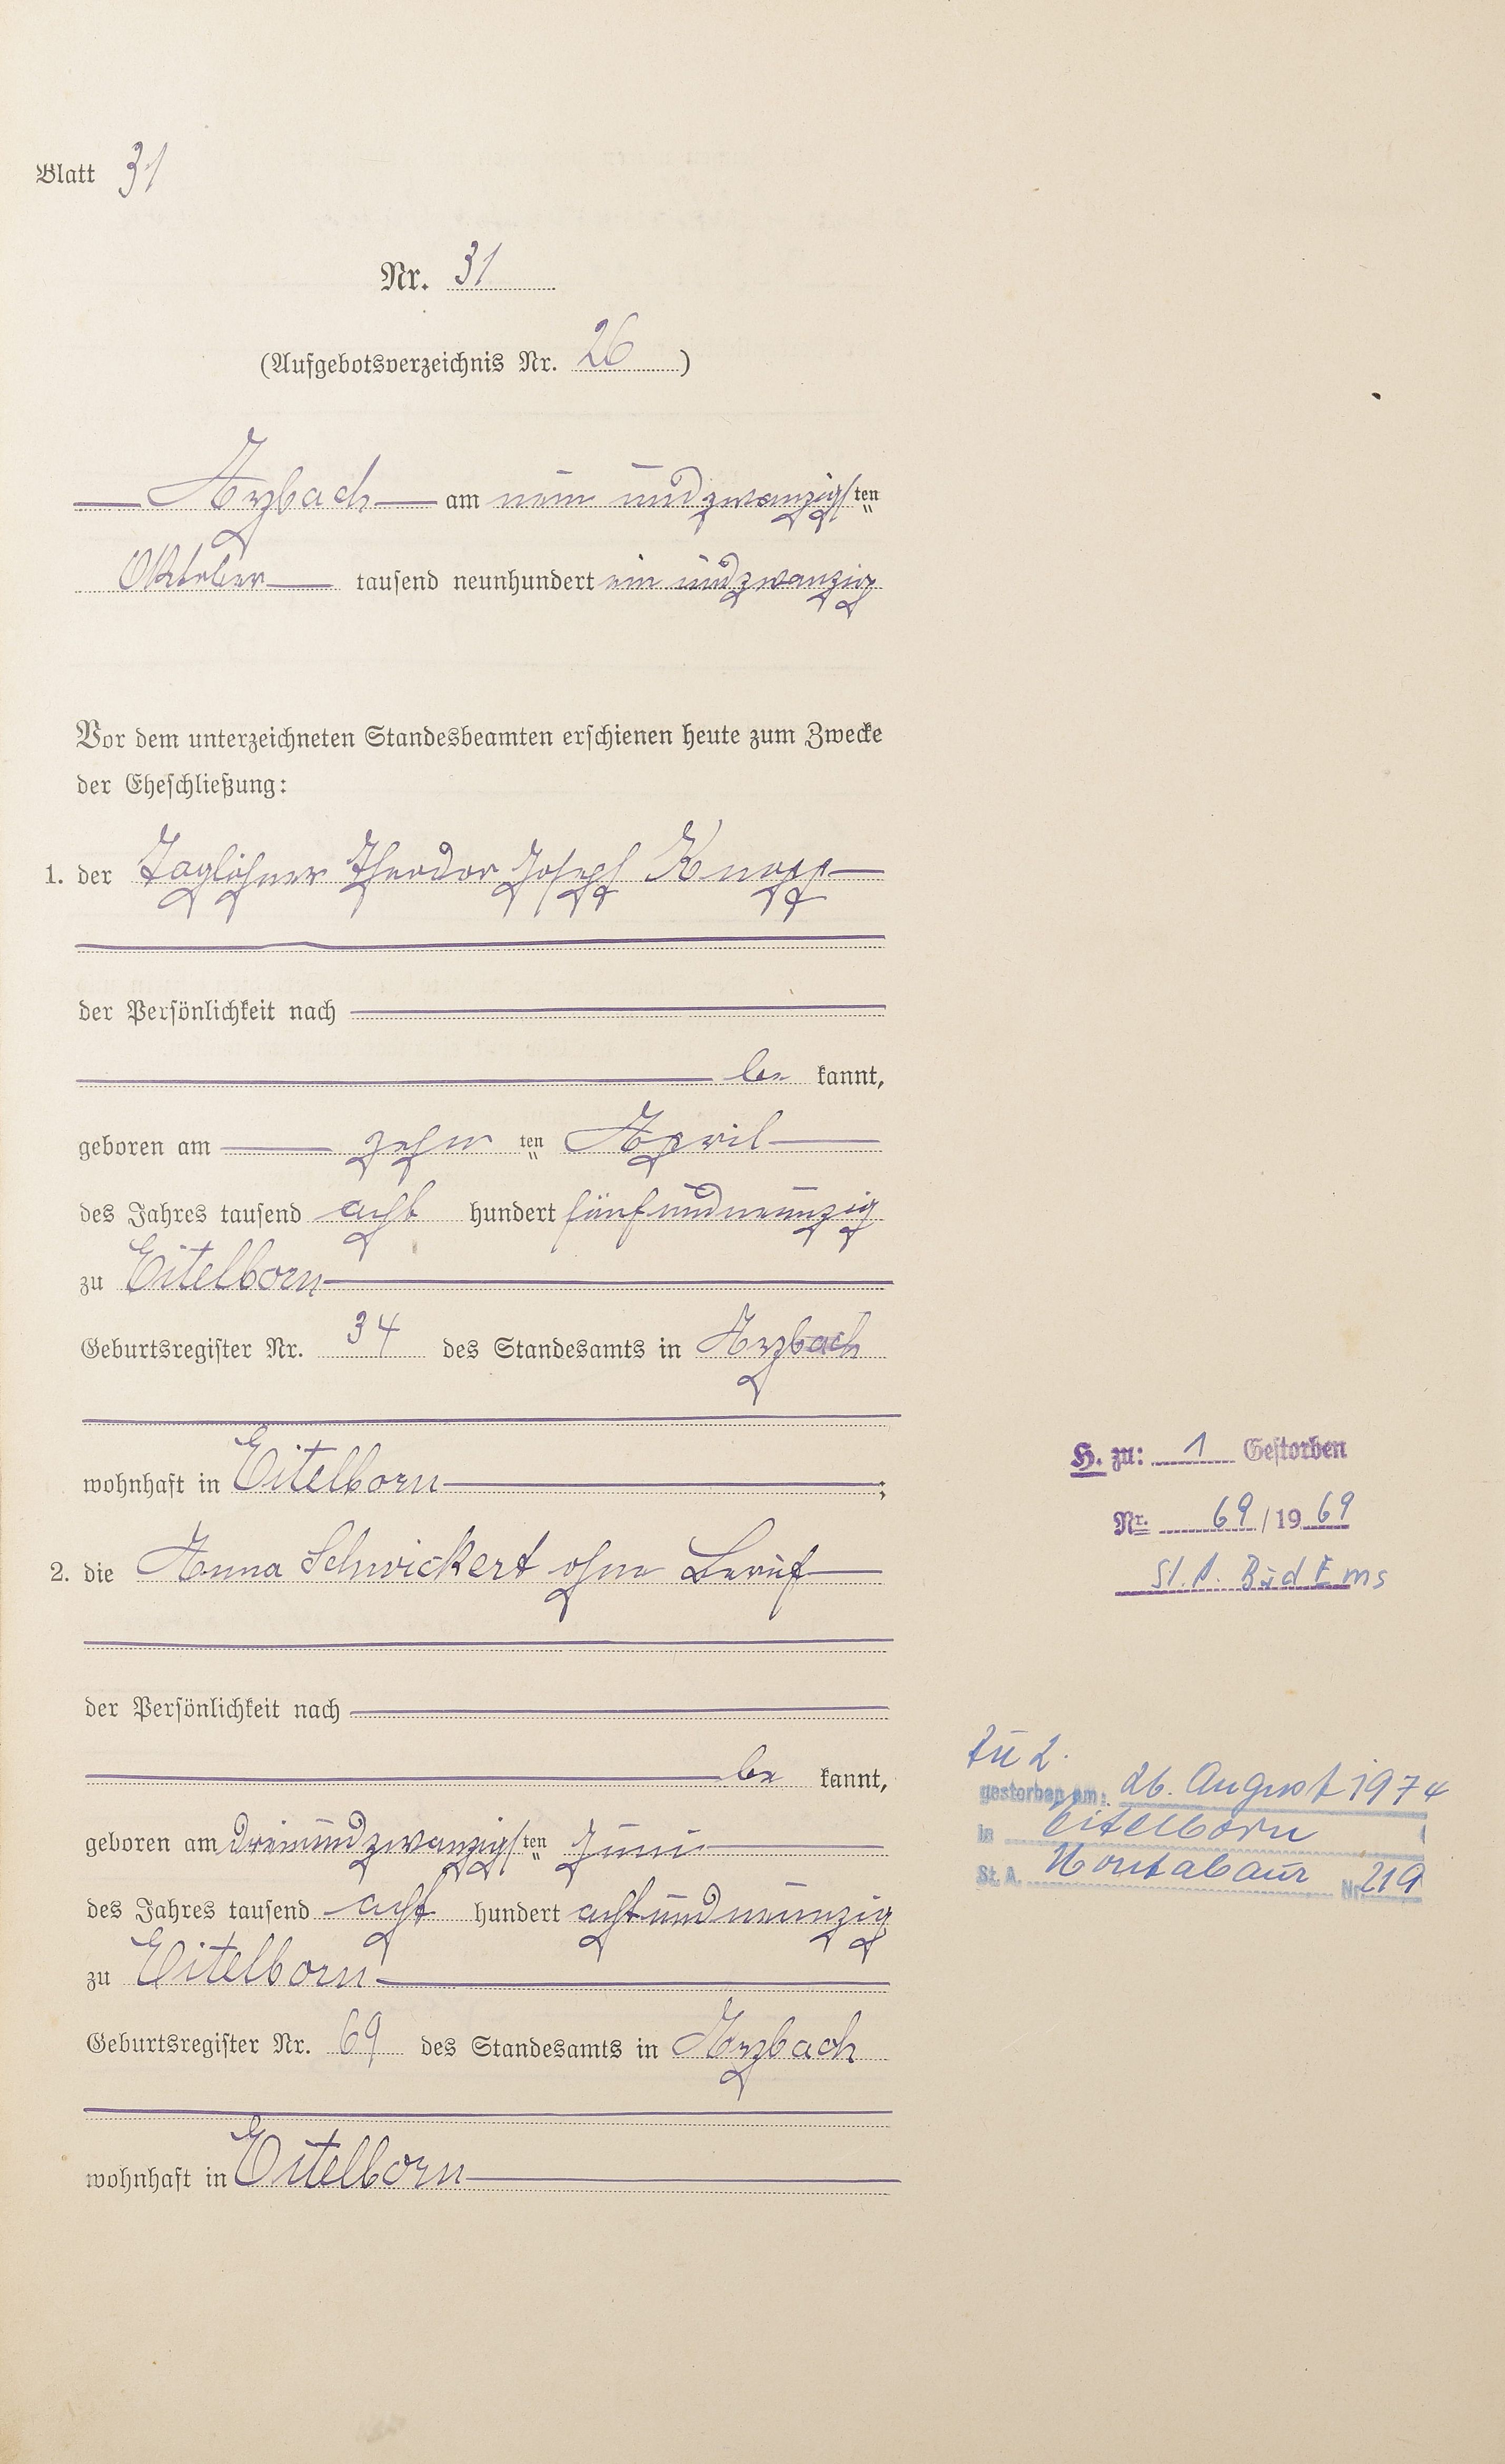 Blatt 31
Nr. 31
(Aufgebotsverzeichnis Nr. 26)
Arzbach am neun und zwanzigsten
Oktober tausend neunhundert ein und zwanzig
Vor dem unterzeichneten Standesbeamten erschienen heute zum Zwecke
der Eheschließung:
1. der Taglöhner Theodor Joseph Knopp
der Persönlichkeit nach
be kannt,
geboren am zehn ten April
des Jahres tausend acht hundert fünfundneunzig
zu Eitelborn
Geburtsregister Nr. 34 des Standesamts in Arzbach
wohnhaft in Eitelborn;
2. die Anna Schwickert ohne Beruf
der Persönlichkeit nach
be kannt,
geboren am dreiundzwanzigsten Juni
des Jahres tausend acht hundert achtundneunzig
zu Eitelborn
Geburtsregister Nr. 69 des Standesamts in Arzbach
wohnhaft in Eitelborn
H. zu: 1 Gestorben
Nr. 69/1969
St. A. Bad Ems
Zu 2.
gestorben am: 26. August 1974
in Eitelborn
St. A. Montabaur Nr. 219